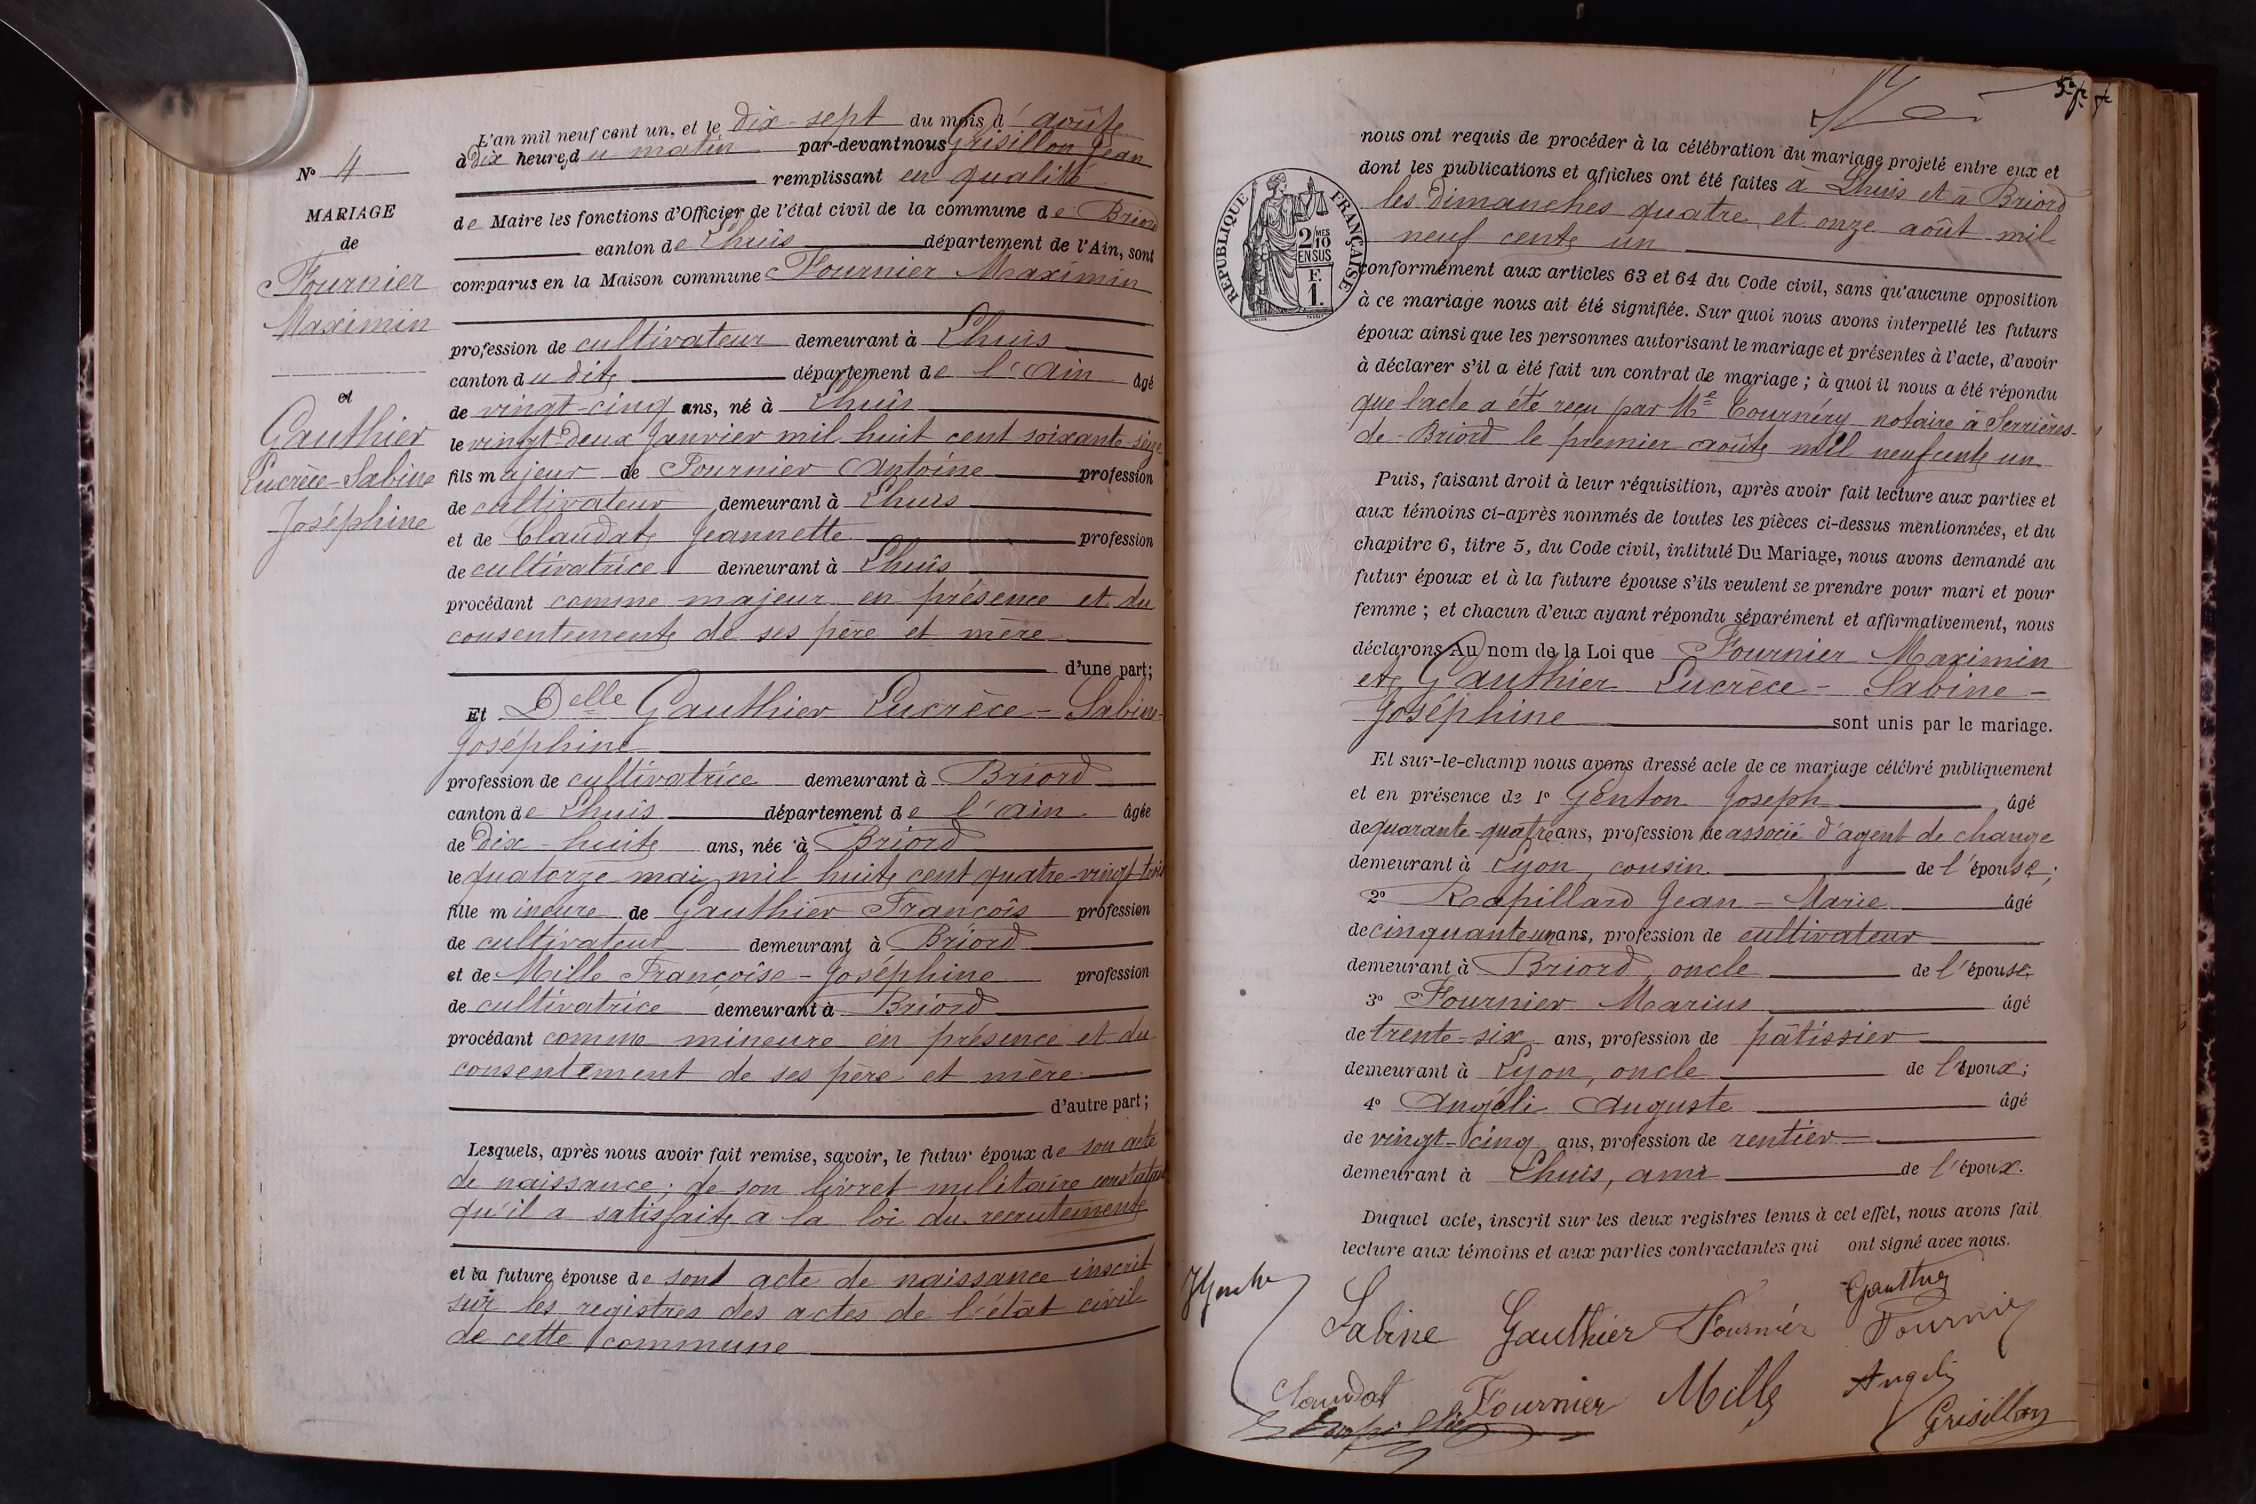 N° 4
MARIAGE
de
Fournier
Maximin
et
Gauthier
Lucrèce-Sabine
Joséphine
L'an mil neuf cent un, et le dix-sept du mois d'août
à dix heures du matin par-devant nous Grisillon Jean
remplissant en qualité
de Maire les fonctions d'Officier de l'état civil de la commune de Briord
canton de Lhuis département de l'Ain, sont
comparus en la Maison commune Fournier Maximin
profession de cultivateur demeurant à Lhuis
canton du dit département de l'Ain âgé
de vingt-cinq ans, né à Lhuis
le vingt deux Janvier mil huit cent soixante-seize
fils majeur de Fournier Antoine profession
de cultivateur demeurant à Lhuis
et de Claudat Jeannette profession
de cultivatrice demeurant à Lhuis
procédant comme majeur en présence et du
consentement de ses père et mère
d'une part;
Et Delle Gauthier Lucrèce-Sabine-
Joséphine
profession de cultivatrice demeurant à Briord
canton de Lhuis département de l'Ain âgée
de Dix-huit ans, née à Briord
le quatorze mai mil huit cent quatre-vingt-trois
fille mineure de Gauthier François profession
de cultivateur demeurant à Briord
et de Mille Françoise-Joséphine profession
de cultivatrice demeurant à Briord
procédant comme mineure en présence et du
consentement de ses père et mère
d'autre part;
Lesquels, après nous avoir fait remise, savoir, le futur époux de son acte
de naissance; de son livret militaire constatant
qu'il a satisfait a la loi du recrutement
et la future épouse de sont acte de naissance inscrit
sur les registres des actes de l'état civil
de cette commune
nous ont requis de procéder à la célébration du mariage projeté entre eux et
dont les publications et affiches ont été faites à Lhuis et à Briord
les dimanches quatre et onze août mil
neuf cent un
RÉPUBLIQUE FRANÇAISE
2 MES
10
EN SUS
F.
1.
conformément aux articles 63 et 64 du Code civil, sans qu'aucune opposition
à ce mariage nous ait été signifiée. Sur quoi nous avons interpellé les futurs
époux ainsi que les personnes autorisant le mariage et présentes à l'acte, d'avoir
à déclarer s'il a été fait un contrat de mariage; à quoi il nous a été répondu
que l'acte a été reçu par Me Tournéry notaire à Serrières-
de-Briord le premier août mil neuf cent un
Puis, faisant droit à leur réquisition, après avoir fait lecture aux parties et
aux témoins ci-après nommés de toutes les pièces ci-dessus mentionnées, et du
chapitre 6, titre 5, du Code civil, intitulé Du Mariage, nous avons demandé au
futur époux et à la future épouse s'ils veulent se prendre pour mari et pour
femme; et chacun d'eux ayant répondu séparément et affirmativement, nous
déclarons Au nom de la Loi que Fournier Maximin
et Gauthier Lucrèce-Sabine-
Joséphine sont unis par le mariage.
Et sur-le-champ nous avons dressé acte de ce mariage célébré publiquement
et en présence de 1° Genton Joseph âgé
de quarante-quatre ans, profession de associé d'agent de change
demeurant à Lyon, cousin de l'épouse;
2° Rapillard Jean-Marie âgé
de cinquante-un ans, profession de cultivateur
demeurant à Briord, oncle de l'épouse;
3° Fournier Marius âgé
de trente-six ans, profession de pâtissier
demeurant à Lyon, oncle de l'époux;
4° Angéli Auguste âgé
de vingt-cinq ans, profession de rentier
demeurant à Lhuis, ami de l'époux.
Duquel acte, inscrit sur les deux registres tenus à cet effet, nous avons fait
lecture aux témoins et aux parties contractantes qui ont signé avec nous.
Gauthier
Sabine Gauthier Fournier Fournier
Claudat Fournier Mille Angeli
Grisillon